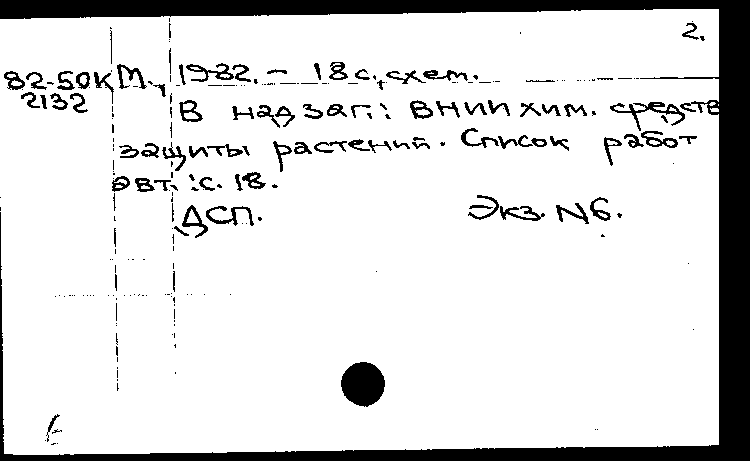 2.
82-50К М., 1982. - 18 с., схем.
2132
В надзаг.: ВНИИ хим. средств
защиты растений. Список работ
авт.: с. 18.
ДСП. Экз. N6.